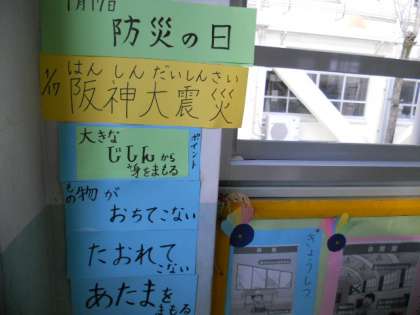 1月17日
防災の日
はんしんだいしんさい
1/17 阪神大震災
大きな
じしんから
身をまもる
ポイント
もの
物が
おちてこない
たおれて
こない
あたまを
まもる
きょうしつ